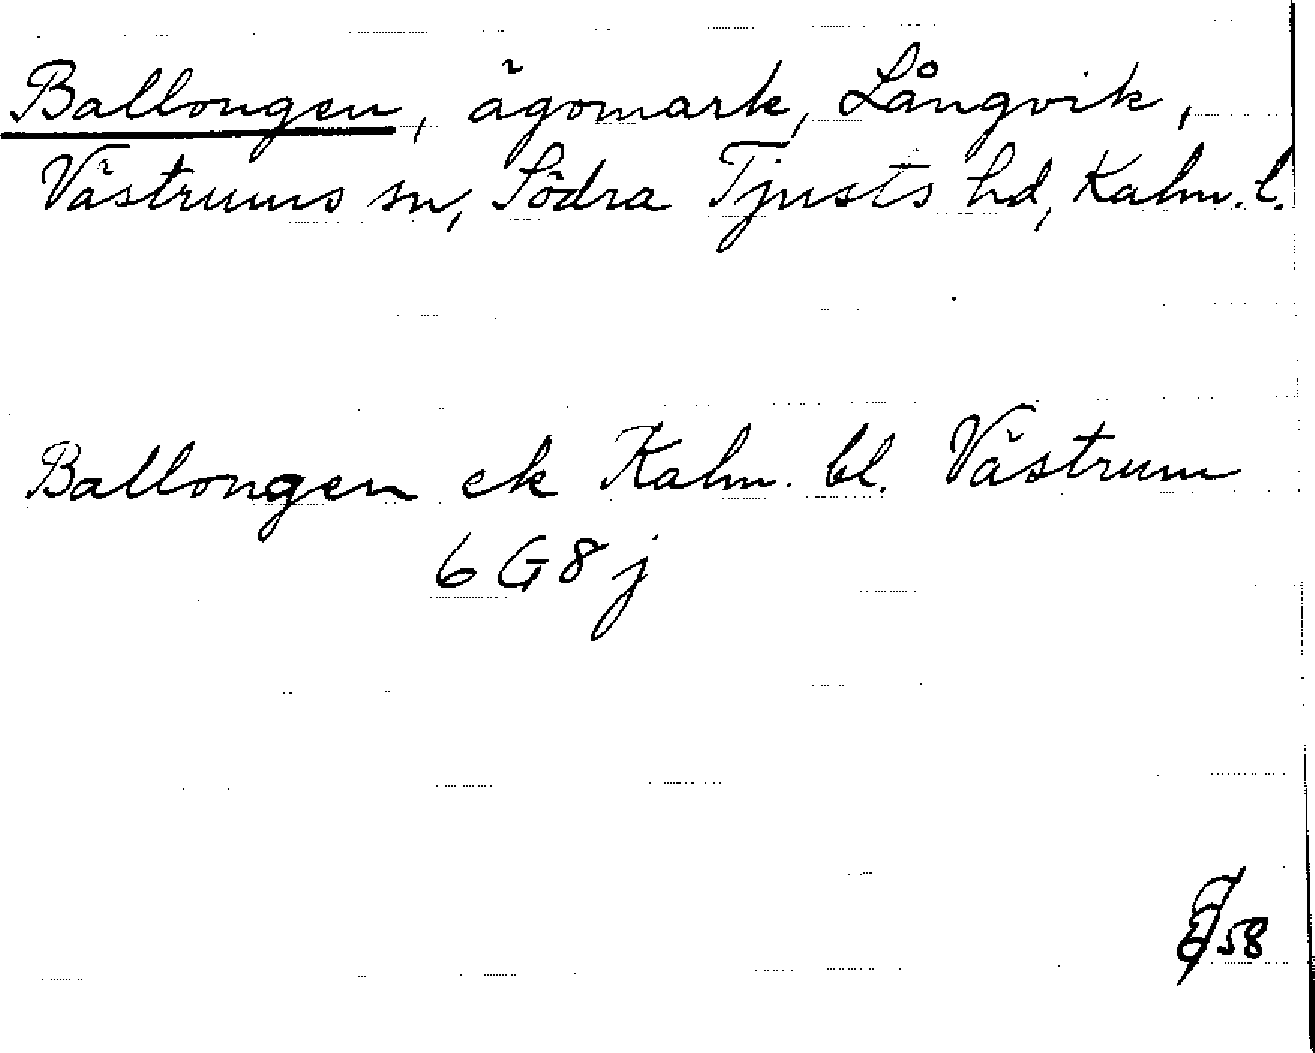 Ballongen, ägomark, Långvik,
Västrums sn, Södra Tjusts hd, Kalm. l.
Ballongen ek Kalm. bl. Västrum
6 G 8 j
58